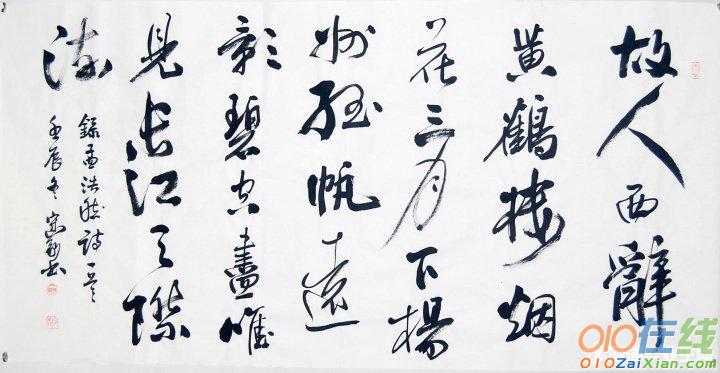 故人西辭
黄鶴楼烟
花三月下楊
州孤帆遠
影碧空盡唯
見長江天際
流
錄孟浩然詩一首
壬辰冬
010在线
010ZaiXian.com